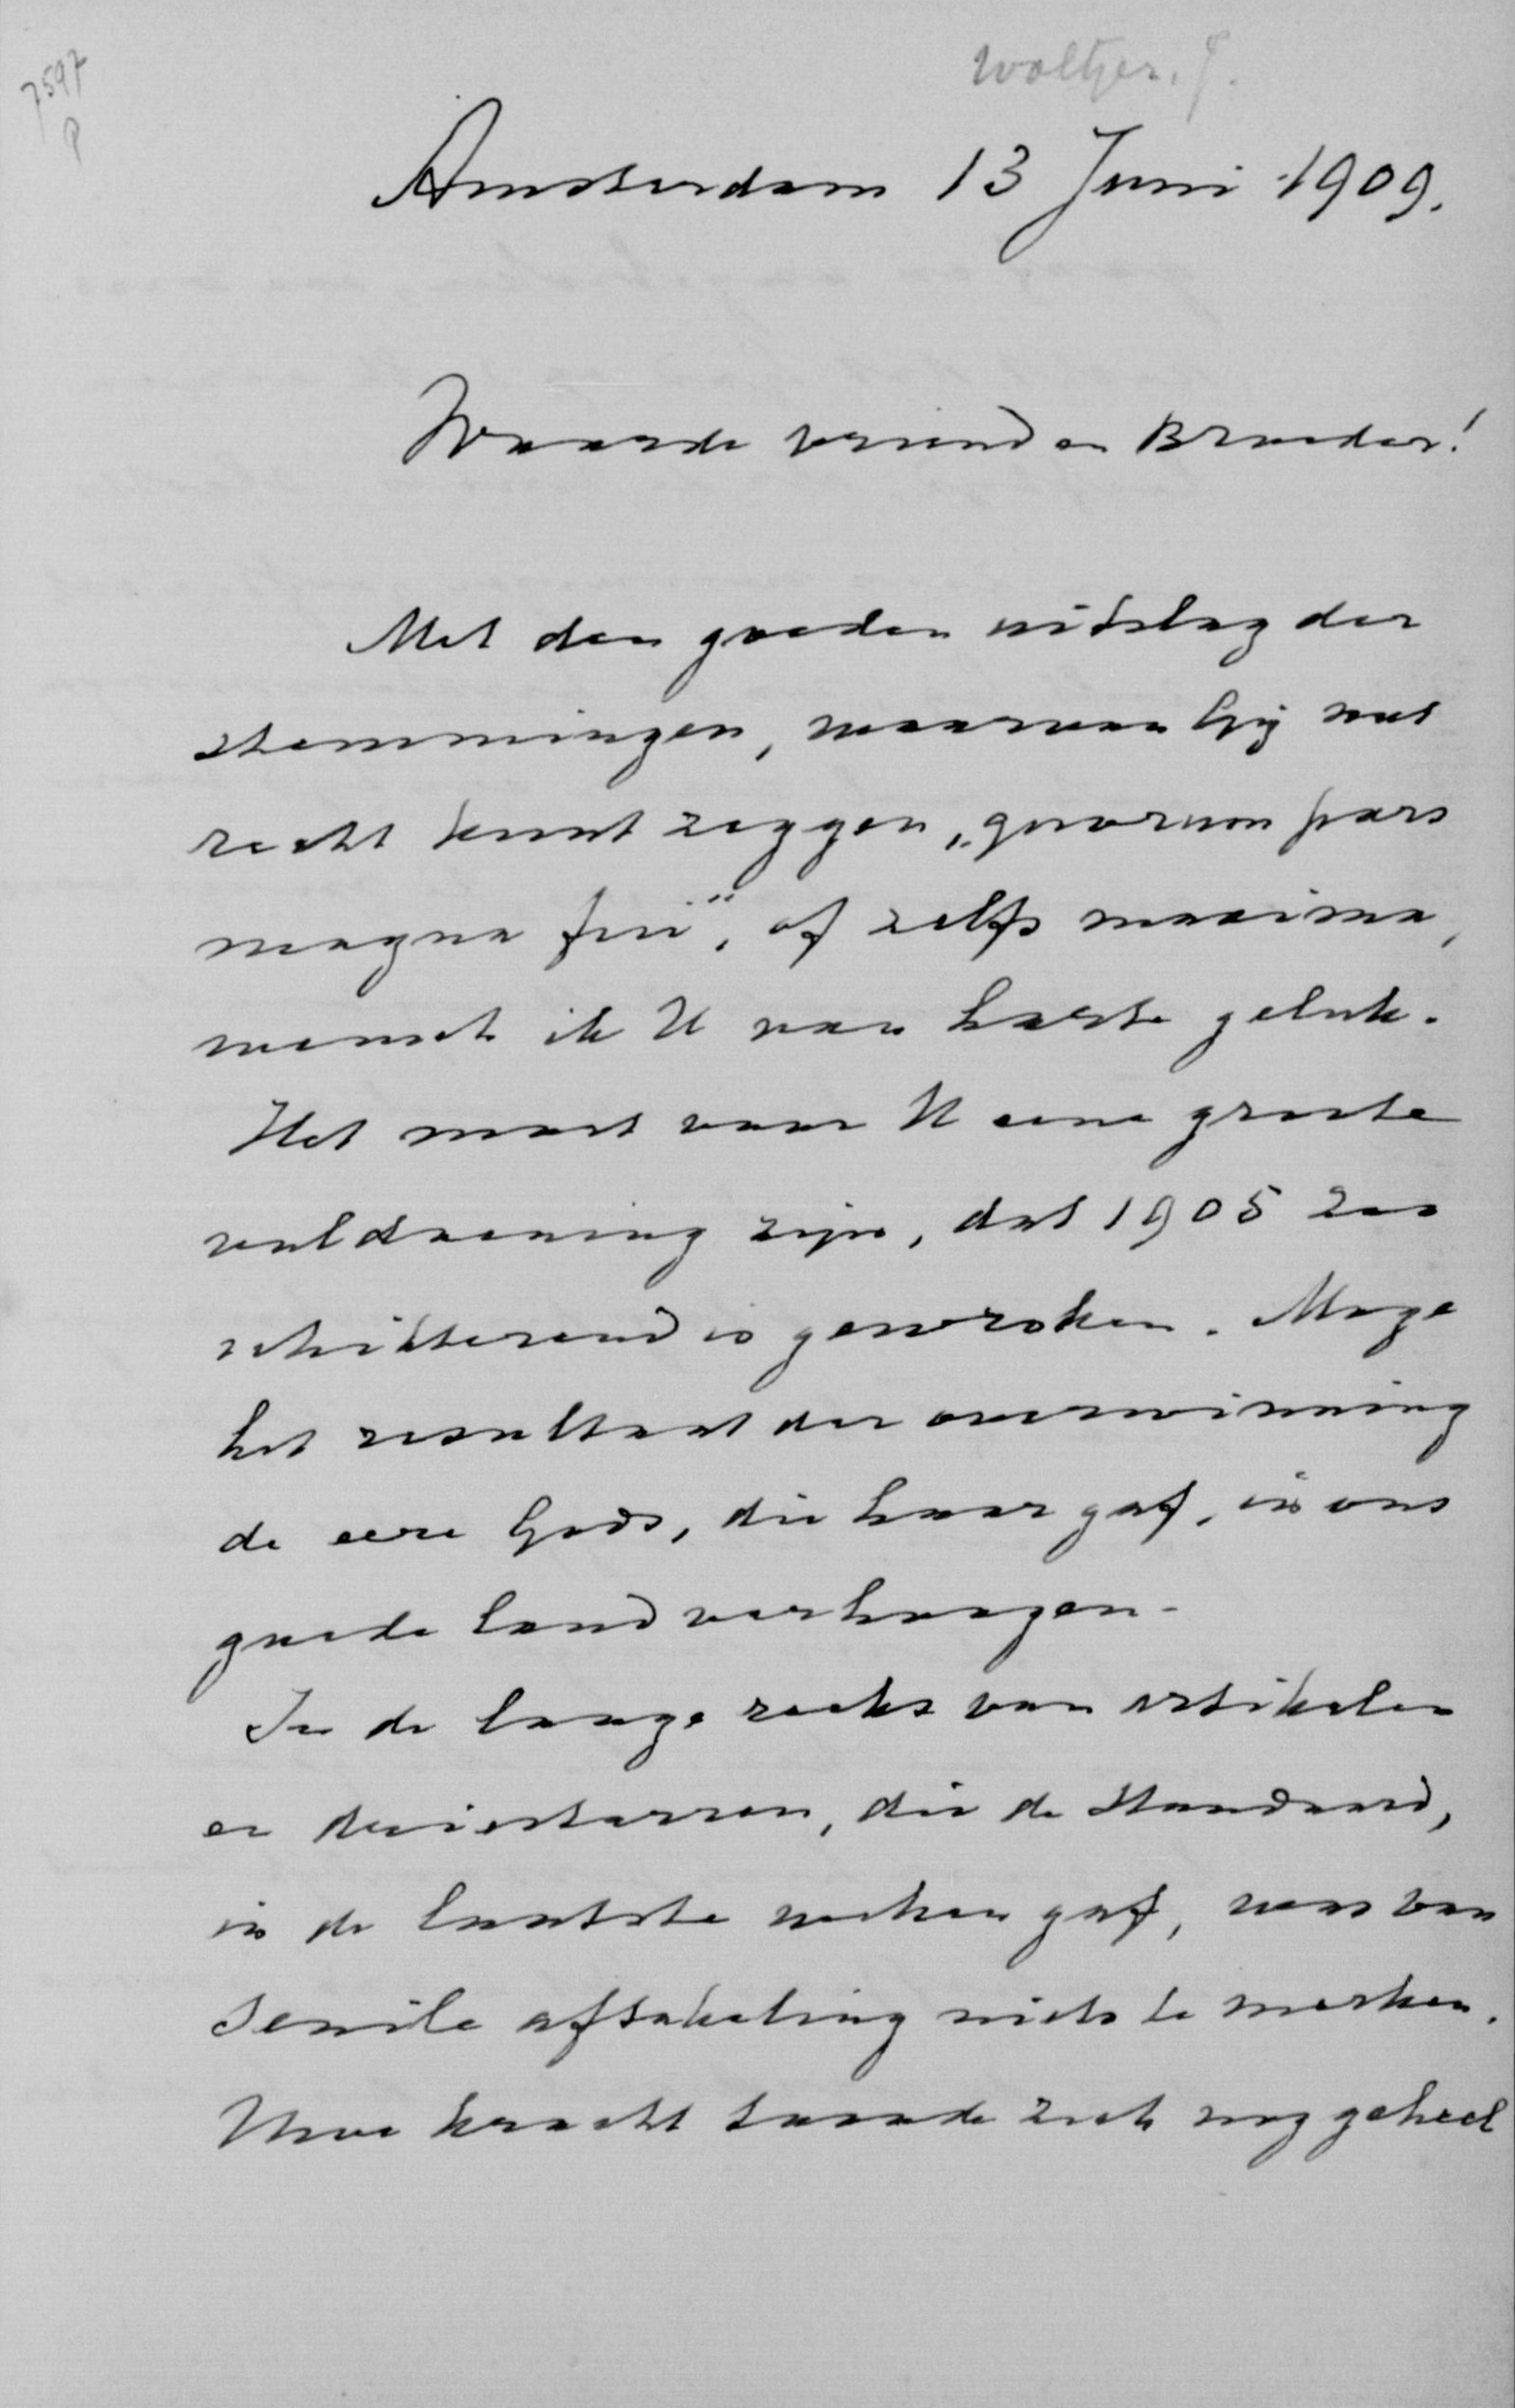 7597
P
Woltjer. J.
Amsterdam 13 Juni 1909.
Waarde vriend en Broeder!
Met den goeden uitslag der
stemmingen, waarvan Gij met
recht kunt zeggen „quorum pars
magna fui", of zelfs maxima,
wensch ik U van harte geluk.
Het moet voor U eene groote
voldoening zijn, dat 1905 zoo
schitterend is gewroken. Moge
het resultaat der overwinning
de eere Gods, die haar gaf, in ons
goede land verhoogen.
In de lange reeks van artikelen
en driestarren, die de Standaard,
in de laatste weken gaf, was van
senile aftakeling niets te merken.
Uwe kracht toonde zich nog geheel